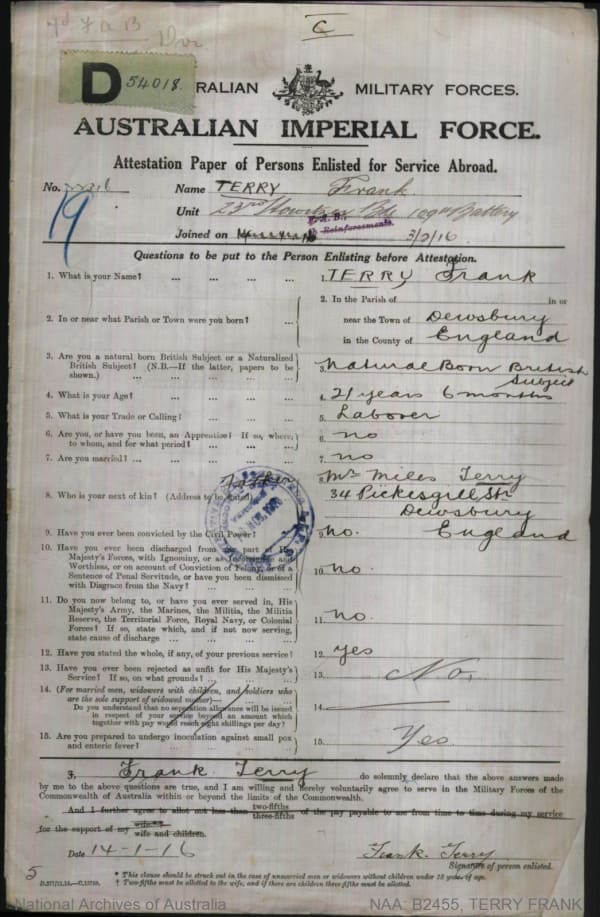 C
D 54018
RALIAN MILITARY FORCES.
AUSTRALIAN IMPERIAL FORCE.
Attestation Paper of Persons Enlisted for Service Abroad.
No. Name TERRY Frank
19 Unit 23rd Howitzer Bde 109th Battery
Reinforcements.
Joined on 3/2/16
Questions to be put to the Person Enlisting before Attestation.
1. What is your Name? ... ... ... ... 1. TERRY Frank
2. In or near what Parish or Town were you born? ... 2. In the Parish of in or
near the Town of Dewsbury
in the County of England
3. Are you a natural born British Subject or a Naturalized
British Subject? (N.B.—If the latter, papers to be
shown.) ... ... ... ... 3. Natural Born British
Subject
4. What is your Age? ... ... ... ... 4. 21 years 6 months
5. What is your Trade or Calling? ... ... ... 5. Laborer
6. Are you, or have you been, an Apprentice? If so, where,
to whom, and for what period? ... ... ... 6. no
7. Are you married? ... ... ... ... 7. no
8. Who is your next of kin? (Address to be stated) Father 8. Mr Miles Terry
34 Pickesgill St
Dewsbury
England
9. Have you ever been convicted by the Civil Power? 9. no.
10. Have you ever been discharged from any part of His
Majesty's Forces, with Ignominy, or as Incorrigible and
Worthless, or on account of Conviction of Felony, or of a
Sentence of Penal Servitude, or have you been dismissed
with Disgrace from the Navy? ... ... 10. no.
11. Do you now belong to, or have you ever served in, His
Majesty's Army, the Marines, the Militia, the Militia
Reserve, the Territorial Force, Royal Navy, or Colonial
Forces? If so, state which, and if not now serving,
state cause of discharge ... ... ... 11. no.
12. Have you stated the whole, if any, of your previous service? 12. yes
13. Have you ever been rejected as unfit for His Majesty's
Service? If so, on what grounds? ... ... 13. No.
14. (For married men, widowers with children, and soldiers who
are the sole support of widowed mother)—
Do you understand that no separation allowance will be issued
in respect of your service beyond an amount which
together with pay would reach eight shillings per day? 14.
15. Are you prepared to undergo inoculation against small pox
and enteric fever? ... ... ... ... 15. Yes
I, Frank Terry do solemnly declare that the above answers made
by me to the above questions are true, and I am willing and hereby voluntarily agree to serve in the Military Forces of the
Commonwealth of Australia within or beyond the limits of the Commonwealth.
And I further agree to allot not less than two-fifths three-fifths of the pay payable to me from time to time during my service
for the support of my wife wife and children.
Date 14-1-16 Frank Terry
Signature of person enlisted.
5
* This clause should be struck out in the case of unmarried men or widowers without children under 18 years of age.
† Two-fifths must be allotted to the wife, and if there are children three-fifths must be allotted.
National Archives of Australia NAA: B2455, TERRY FRANK